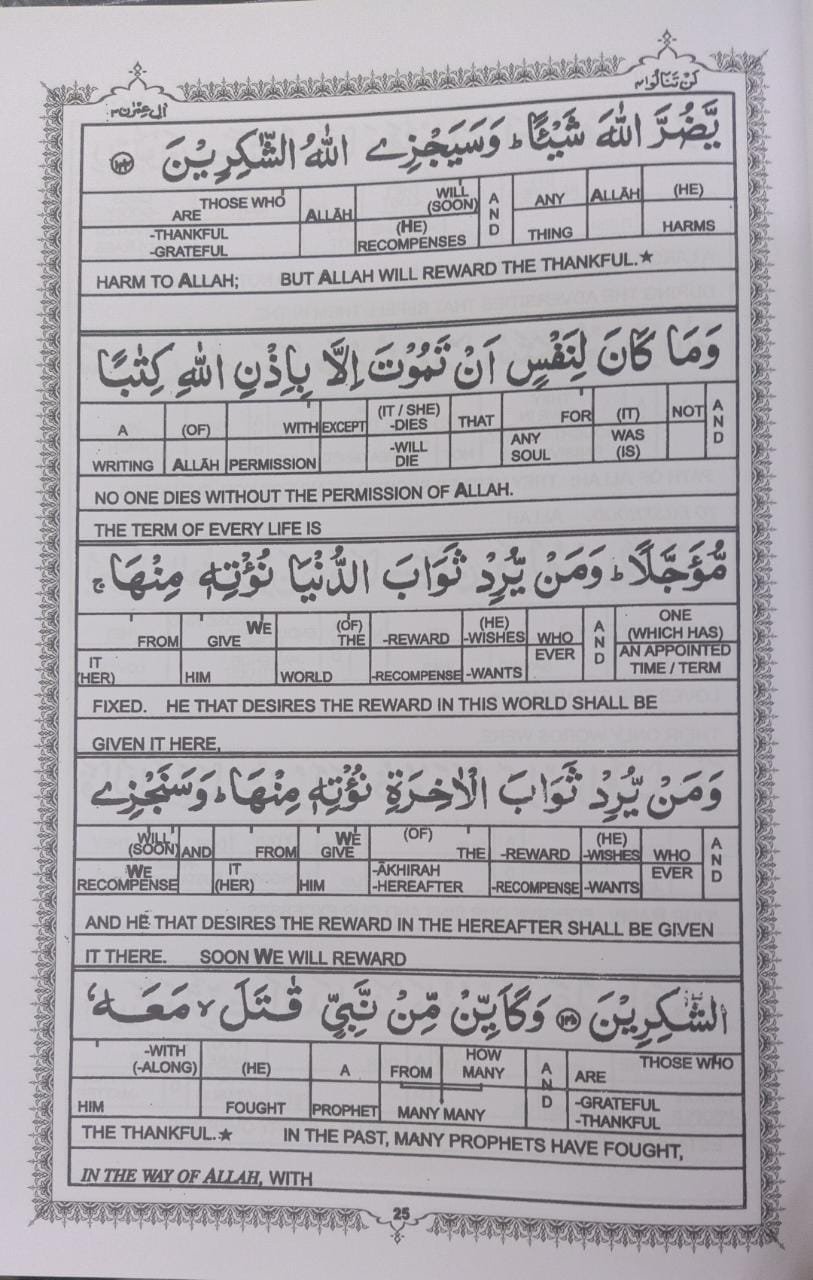 لَنْ تَنَالُوا ٤
اٰلِ عِمْرٰن ٣
يَّضُرَّ اللّٰهَ شَيْـًٔا ؕ وَسَيَجْزِے اللّٰهُ الشّٰكِرِيْنَ ﴿۱۴۴﴾
THOSE WHO ALLĀH WILL (SOON) A N D ANY ALLĀH (HE)
ARE -THANKFUL -GRATEFUL (HE) RECOMPENSES THING HARMS
HARM TO ALLAH; BUT ALLAH WILL REWARD THE THANKFUL.★
وَمَا كَانَ لِنَفْسٍ اَنْ تَمُوْتَ اِلَّا بِاِذْنِ اللّٰهِ كِتٰبًا
A (OF) WITH EXCEPT (IT / SHE) -DIES THAT FOR (IT) NOT A N D
WRITING ALLĀH PERMISSION -WILL DIE ANY SOUL WAS (IS)
NO ONE DIES WITHOUT THE PERMISSION OF ALLAH.
THE TERM OF EVERY LIFE IS
مُّؤَجَّلًا ؕ وَمَنْ يُّرِدْ ثَوَابَ الدُّنْيَا نُؤْتِهٖ مِنْهَا ۚ
FROM GIVE WE (OF) THE -REWARD (HE) -WISHES WHO A N D ONE (WHICH HAS)
IT (HER) HIM WORLD -RECOMPENSE -WANTS EVER AN APPOINTED TIME / TERM
FIXED. HE THAT DESIRES THE REWARD IN THIS WORLD SHALL BE
GIVEN IT HERE,
وَمَنْ يُّرِدْ ثَوَابَ الْاٰخِرَةِ نُؤْتِهٖ مِنْهَا ؕ وَسَنَجْزِے
WILL (SOON) AND FROM GIVE WE (OF) THE -REWARD (HE) -WISHES WHO A N D
WE RECOMPENSE IT (HER) HIM -ĀKHIRAH -HEREAFTER -RECOMPENSE -WANTS EVER
AND HE THAT DESIRES THE REWARD IN THE HEREAFTER SHALL BE GIVEN
IT THERE. SOON WE WILL REWARD
الشّٰكِرِيْنَ ﴿۱۴۵﴾ وَكَاَيِّنْ مِّنْ نَّبِيٍّ قٰتَلَ ۙ مَعَهٗ
-WITH (-ALONG) (HE) A FROM HOW MANY A N D THOSE WHO ARE
HIM FOUGHT PROPHET MANY MANY -GRATEFUL -THANKFUL
THE THANKFUL.★ IN THE PAST, MANY PROPHETS HAVE FOUGHT,
IN THE WAY OF ALLAH, WITH
25